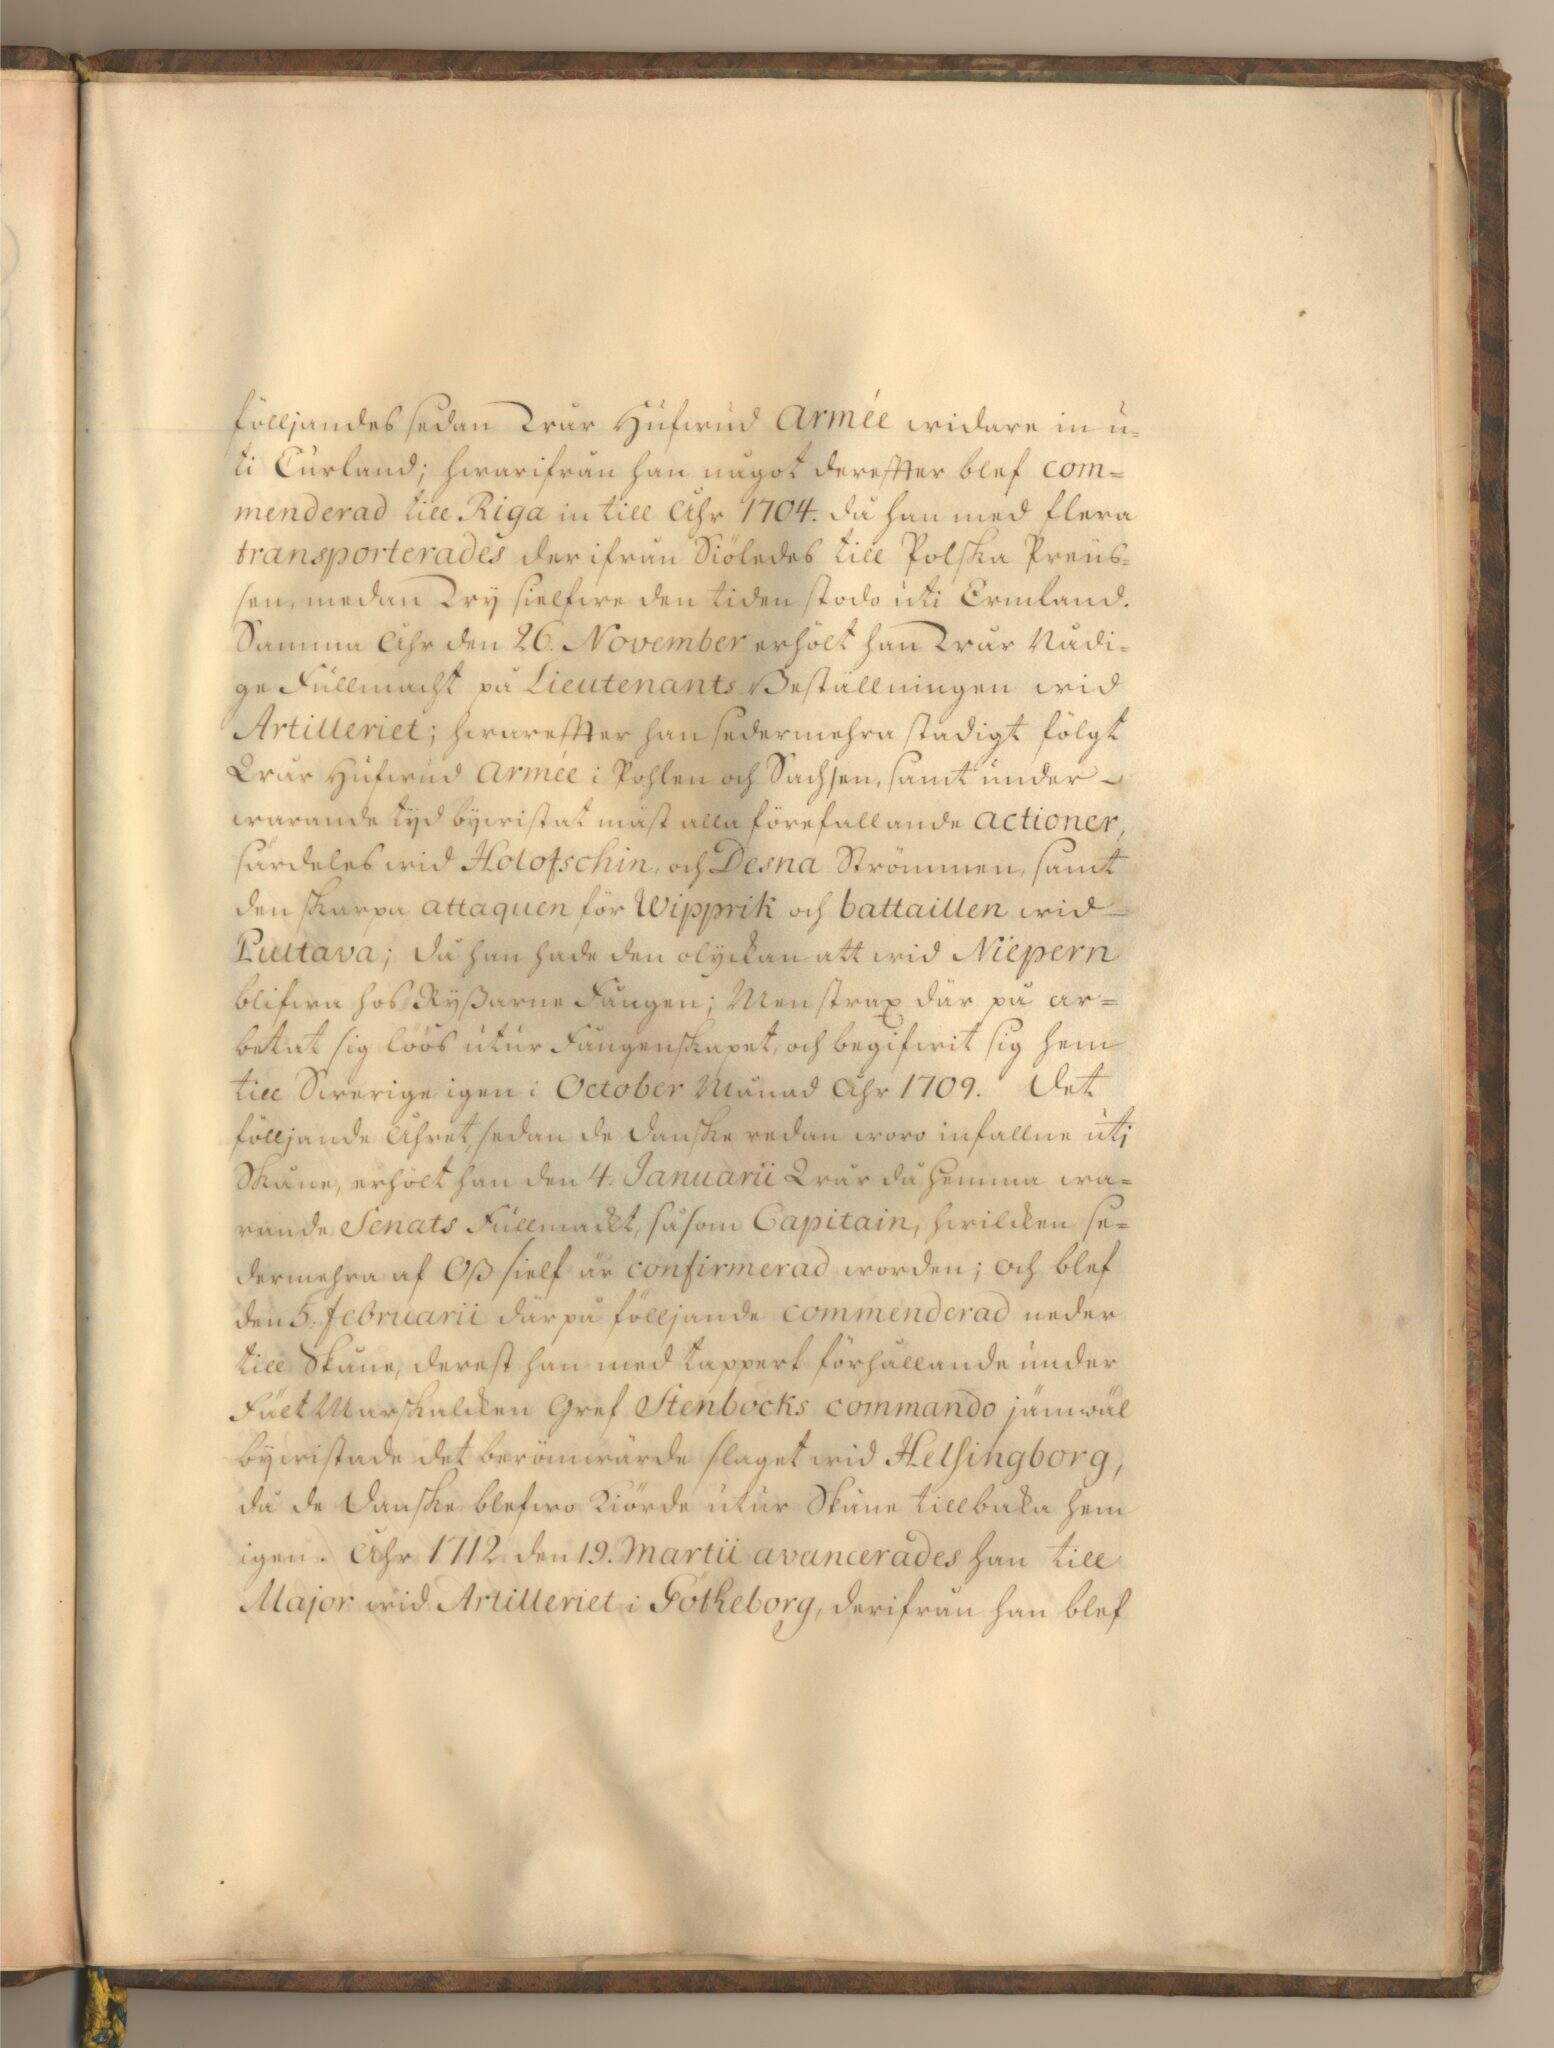 fölljandes sedan Wår Hufwud Armée widare in u-
ti Curland; hwarifrån han något derefter blef com-
menderad till Riga in till Åhr 1704. då han med flera
transporterades der ifrån Siöledes till Polska Preus-
sen, medan Wÿ sielfwe den tiden stodo uti Ermland.
Samma Åhr den 26. November erhölt han Wår Nådi-
ge Fullmacht på Lieutenants Beställningen wid
Artilleriet; hwarefter han sedermehra stadigt fölgt
Wår Hufwud Armée i Pohlen och Sachsen, samt under-
warande tÿd bÿwistat mäst alla förefallande actioner,
särdeles wid Holofschin, och Desna Strömmen, samt
den skarpa attaquen för Wipprik och battaillen wid
Pultava; då han hade den olÿckan att wid Niepern
blifwa hos Rÿßarne Fången; Men strax där på ar-
betat sig löös utur Fångenskapet, och begifwit sig hem
till Swerige igen i October Månad Åhr 1709. Det
fölljande Åhret, sedan de Danske redan woro infallne uti
Skåne, erhölt han den 4. Januarii Wår då hemma wa-
rande Senats Fullmackt, såsom Capitain, hwilcken se-
dermehra af Oß sielf är confirmerad worden; och blef
den 5. februarii därpå fölljande commenderad neder
till Skåne, derest han med tappert förhållande under
Fält Marskalcken Gref Stenbocks commando jämwäl
bÿwistade det berömwärde slaget wid Helsingborg,
då de Danske blefwo Kiörde utur Skåne tillbaka hem
igen. Åhr 1712 den 19. Martii avancerades han till
Major wid Artilleriet i Götheborg, derifrån han blef